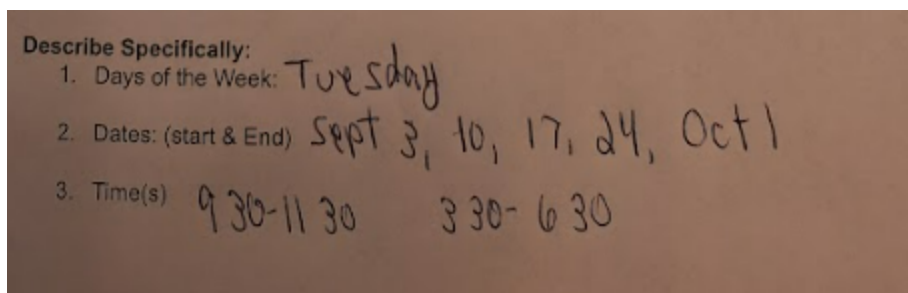 Describe Specifically:
1. Days of the Week: Tuesday
2. Dates: (start & End) Sept 3, 10, 17, 24, Oct 1
3. Time(s) 9 30-11 30 3 30- 6 30